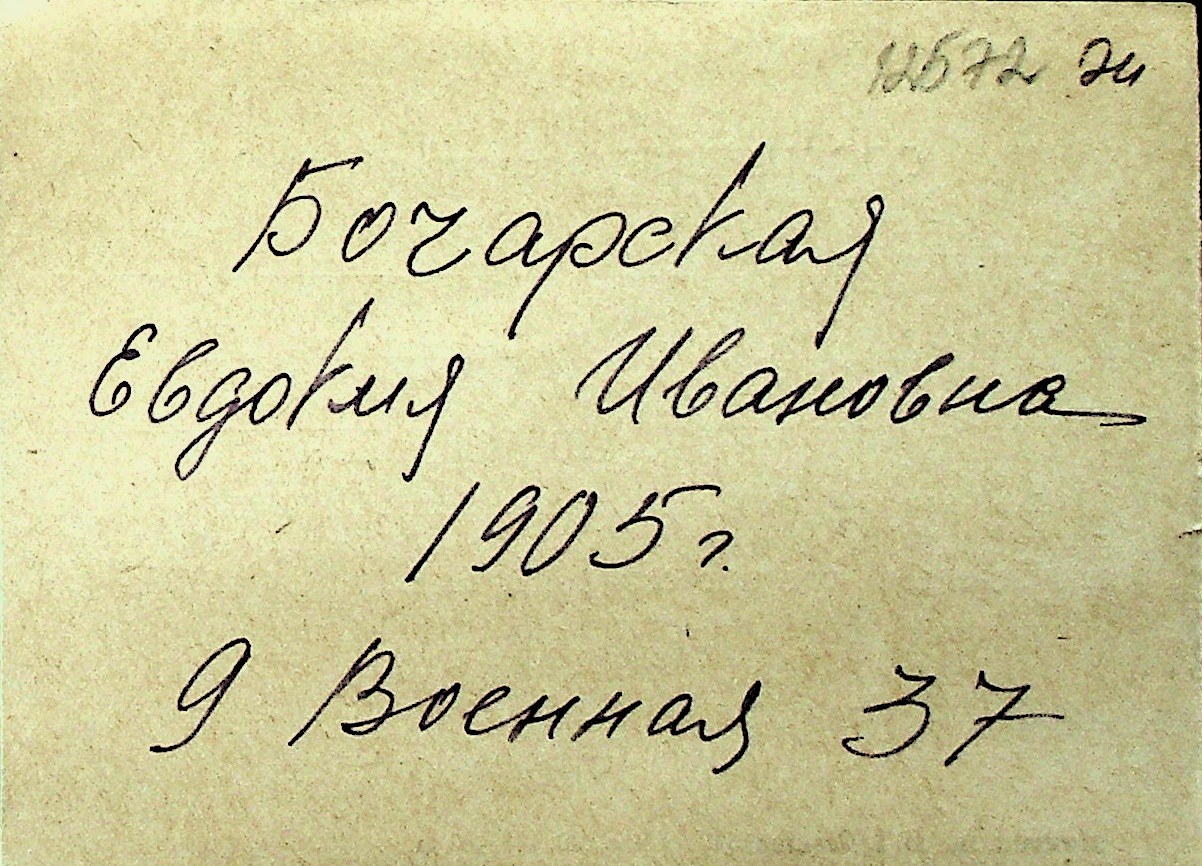 12572
Бочарская
Евдокия Ивановна
1905 г.
9 Военная 37